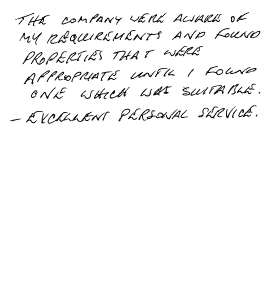 THE COMPANY WERE AWARE OF
MY REQUIREMENTS AND FOUND
PROPERTIES THAT WERE
APPROPRIATE UNTIL I FOUND
ONE WHICH WAS SUITABLE.
- EXCELLENT PERSONAL SERVICE.